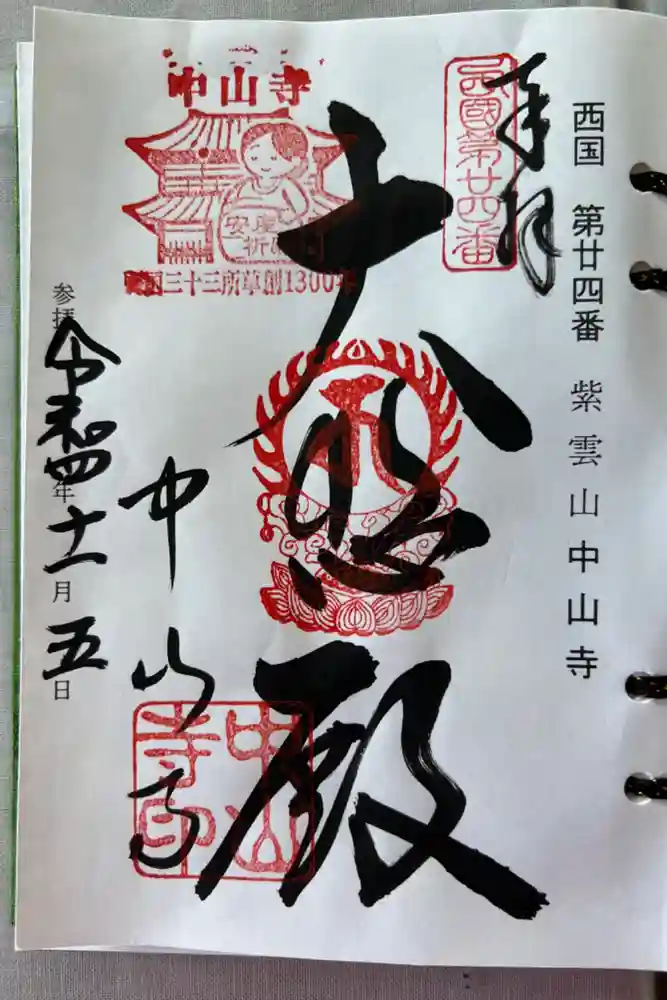 西国 第廿四番 紫雲山中山寺
奉拝
西國第廿四番
大悲殿
中山寺
安産
祈願
西国三十三所草創1300年
中山寺
中山寺印
参拝 令和四年十一月五日